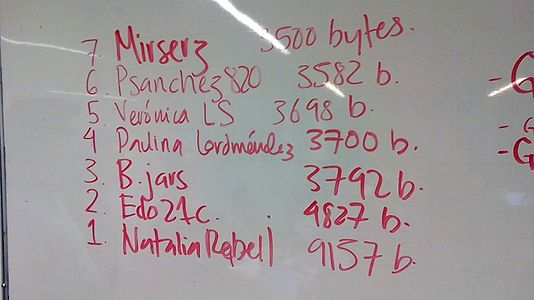 7 Mirserz 3500 bytes.
6 Psanchez820 3582 b.
5 Verónica LS 3698 b.
4 Paulina 3700 b.
3. B.jars 3792 b.
2. Edo21c. 4827 b.
1. NataliaRebell 9157 b.
- G
- G
- G